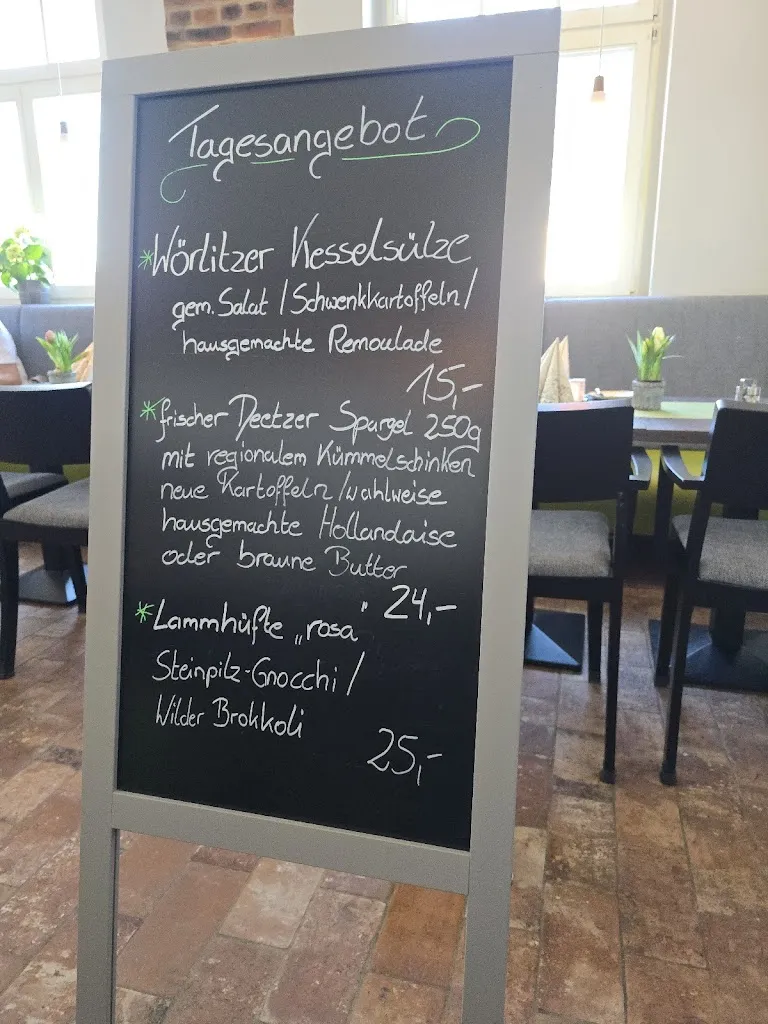 Tagesangebot
*Wörlitzer Kesselsülze
gem. Salat / Schwenkkartoffeln /
hausgemachte Remoulade
15,-
*frischer Deetzer Spargel 250g
mit regionalem Kümmelschinken
neue Kartoffeln / wahlweise
hausgemachte Hollandaise
oder braune Butter
24,-
*Lammhüfte „rosa"
Steinpilz-Gnocchi /
Wilder Brokkoli
25,-